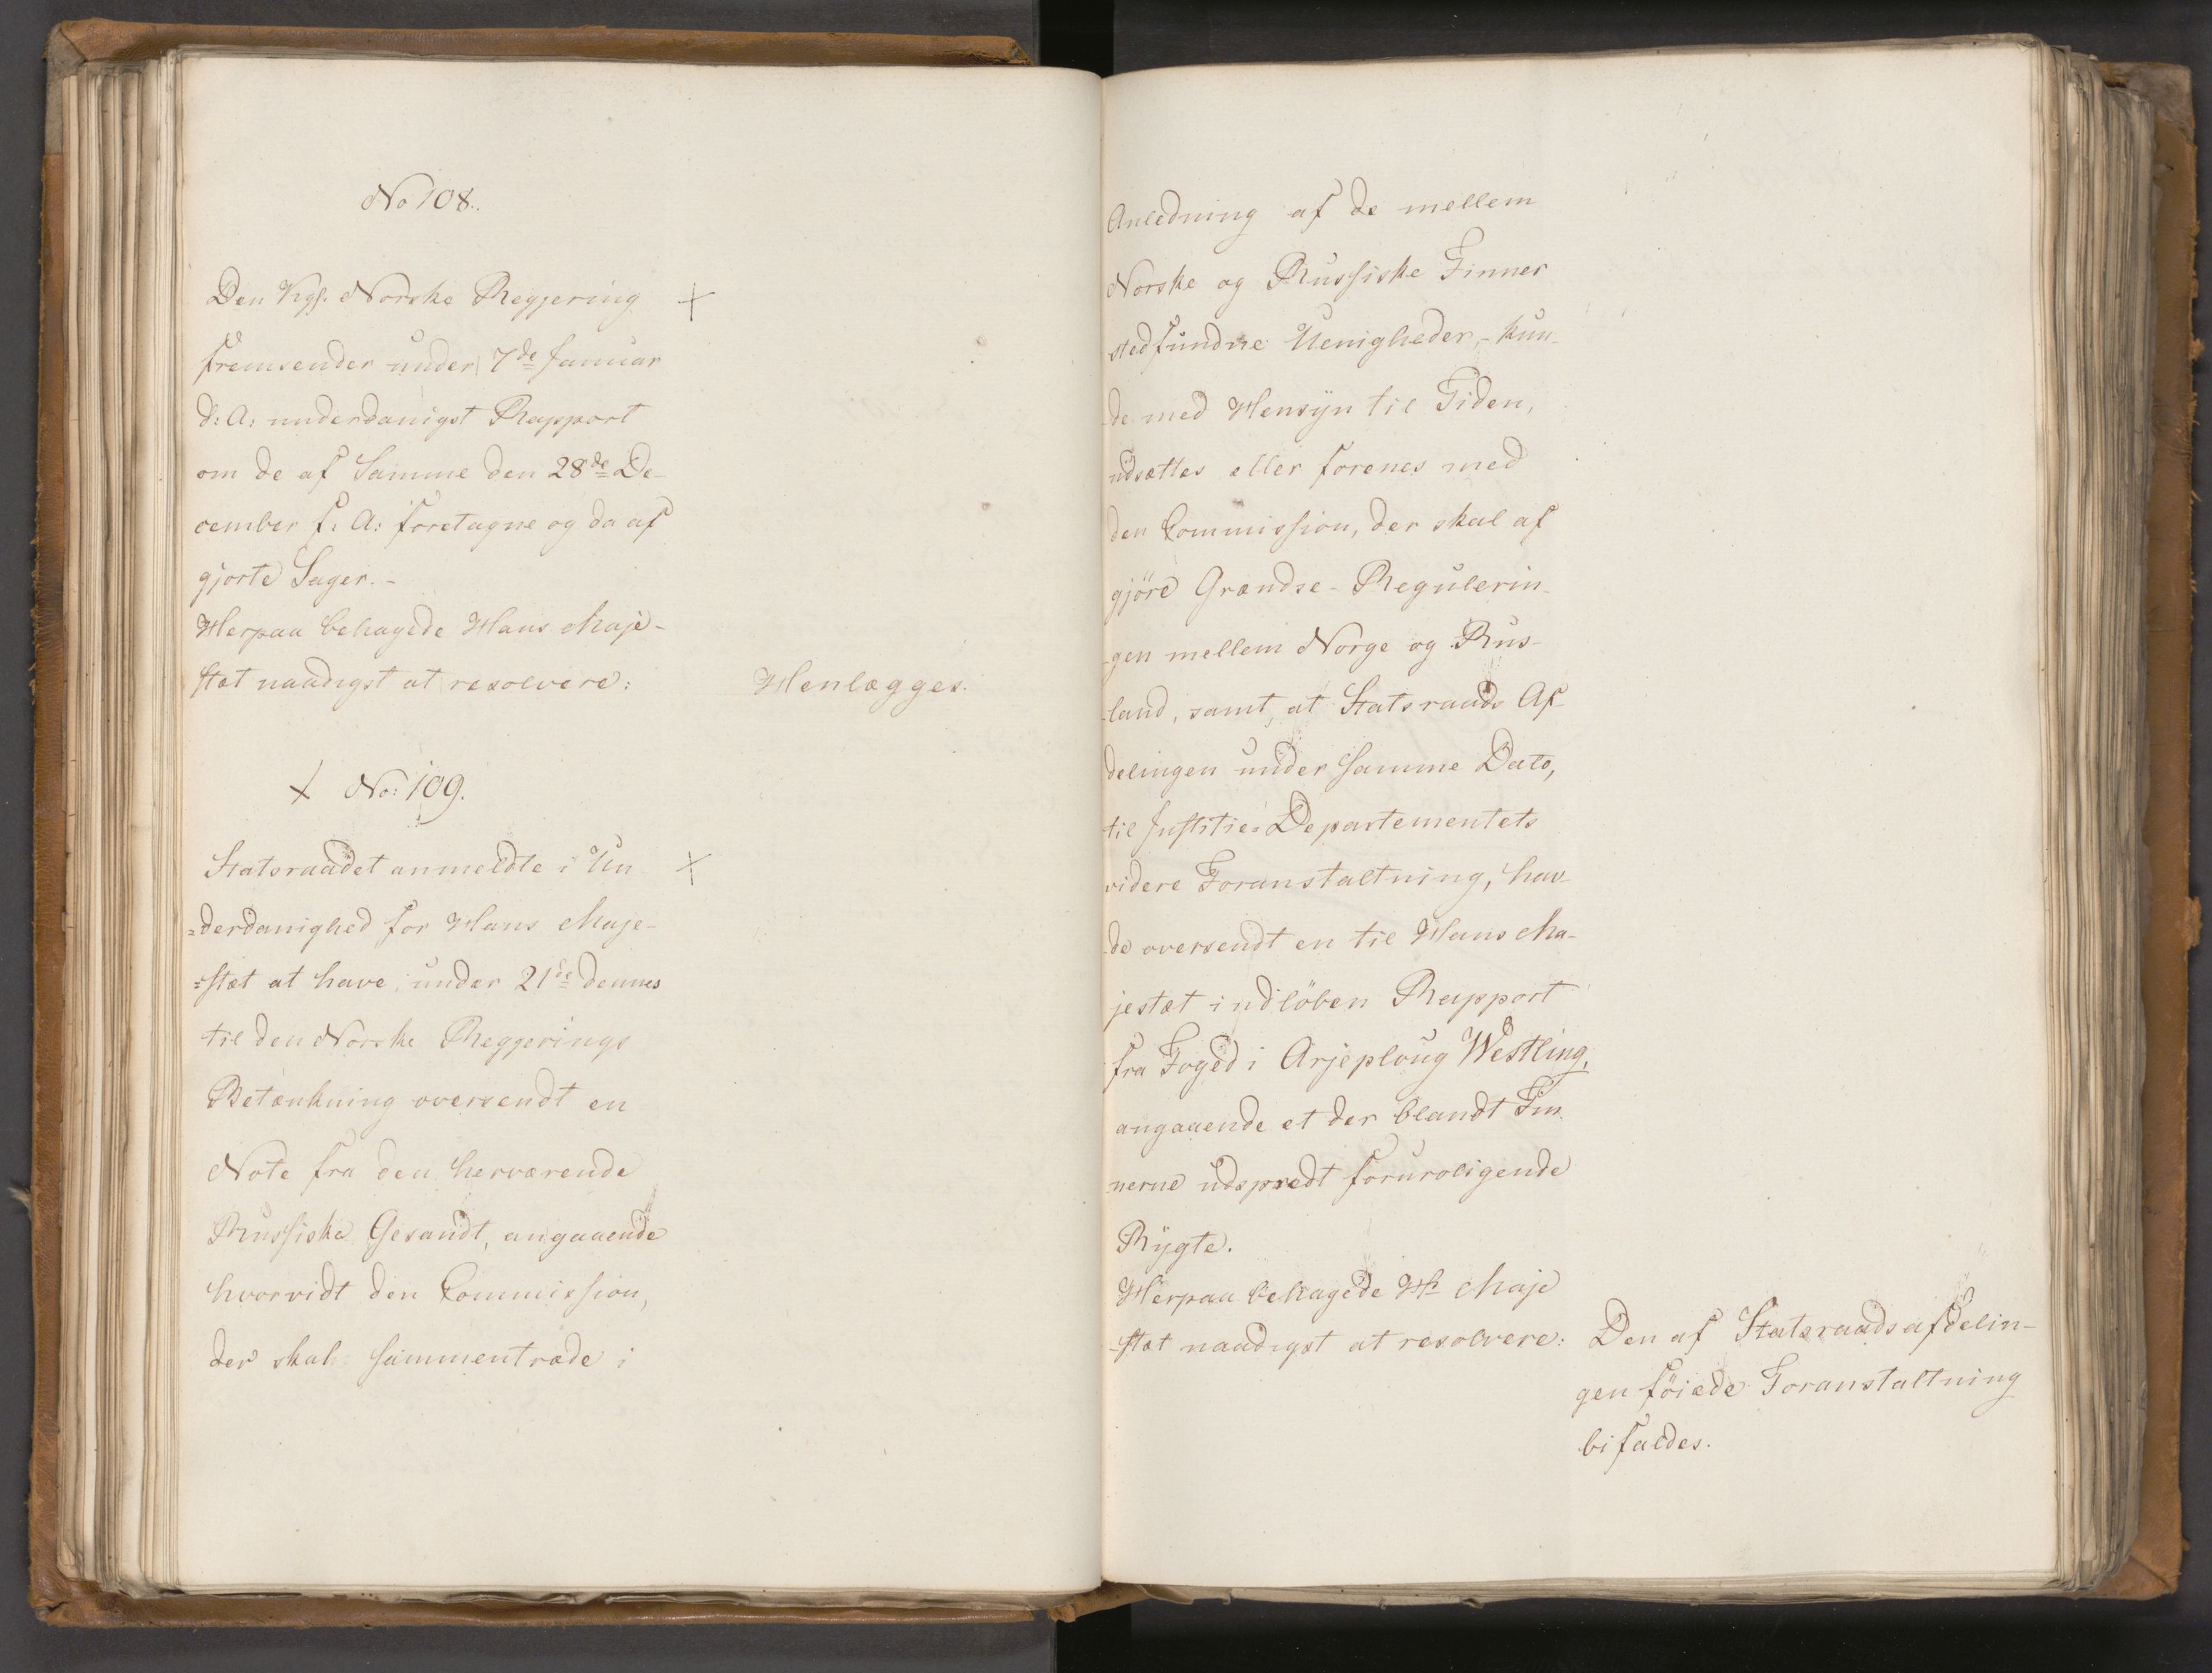 No 108.
Den Kgl. Norske Regjering +
fremsender under 7de Januar
d: A: underdanigst Rapport
om de af Samme den 28de De-
cember f: A: foretagne og da af
gjorte Sager. -
Herpaa behagede Hans Maje-
stæt naadigst at resolvere:
Henlægges.
+ No: 109.
Statsraadet anmeldte i Un +
=derdanighed for Hans Maje-
=stæt at have, under 21de dennes
til den Norske Regjerings
Betænkning oversendt en
Note fra den herværende
Russiske Gesandt, angaaende
hvorvidt den Commission,
der skal sammentræde i
Anledning af de mellem
Norske og Russiske Finner
stedfundne Uenigheder, - kun-
-de med Hensyn til Tiden,
udsættes eller forenes med
den Commission, der skal af
gjöre Grændse-Regulerin-
-gen mellem Norge og Rus-
-land, samt, at Statsraads Af-
delingen under samme Dato,
til Justitie-Departementets
videre Foranstaltning, hav-
-de oversendt en til Hans Ma-
jestæt indlöben Rapport
fra Foged i Arjeploug Westling,
angaaende et der blandt Fin
nerne udspredt foruroligende
Rygte.
Herpaa behagede Hs Maje
-stæt naadigst at resolvere:
Den af Statsraadsafdelin-
gen föiede Foranstaltning
bifaldes.